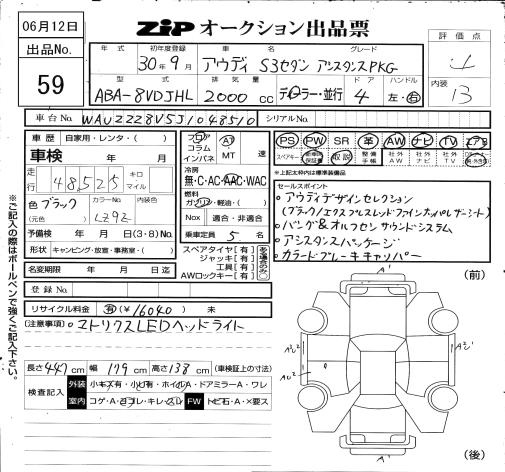 06月12日
ZIP オークション出品票
出品No.
59
評価点
内装
13
年式 初年度登録 車名 グレード
30年9月 アウディ S3セダン アシスタンスPKG
型式 排気量 ドア ハンドル
ABA-8VDJHL 2000cc ディーラー・並行 4 左・右
車台No.
シリアルNo.
車歴 自家用・レンタ・( )
車検 年 月
走行 48525 キロ マイル
色 ブラック カラーNo. LZ9Z 内装色
(元色)
予備検 年 月 日(3・8)No.
形状 キャンピング・放室・事務室・( )
名変期限 年 月 日迄
登録No.
フロア コラム インパネ
AT MT 速
冷房
無・C・AC・AAC・WAC
燃料
ガソリン・軽油・( )
NOX 適合・非適合
乗車定員 5 名
スペアタイヤ[有]
ジャッキ[有]
工具[有]
AWロックキー[有]
PS PW SR 革 AW ナビ TV エアB
スペアキー 保証書 取説 整備手帳 社外AW 社外ナビ 社外TV
※上記太枠内は標準装備品
セールスポイント
・アウディデザインセレクション
(ブラック/エクスプレスレッドファインナッパレザーシート)
・バング&オルフセンサウンドシステム
・アシスタンスパッケージ
・カラードブレーキキャリパー
リサイクル料金 有(¥16040) 未
(注意事項)。マトリクスLEDヘッドライト
長さ447cm 幅179cm 高さ138cm (車検証上の寸法)
検査記入 外装 小キズ有・小凹有・ホイルA・ドアミラーA・ワレ
室内 コゲ・A・ヨゴレ・キレ・スレ FW トビ石・A・X要ス
※ご記入の際はボールペンで強くご記入下さい。
(前)
A'
A2'
A2'
A2²
A'
(後)